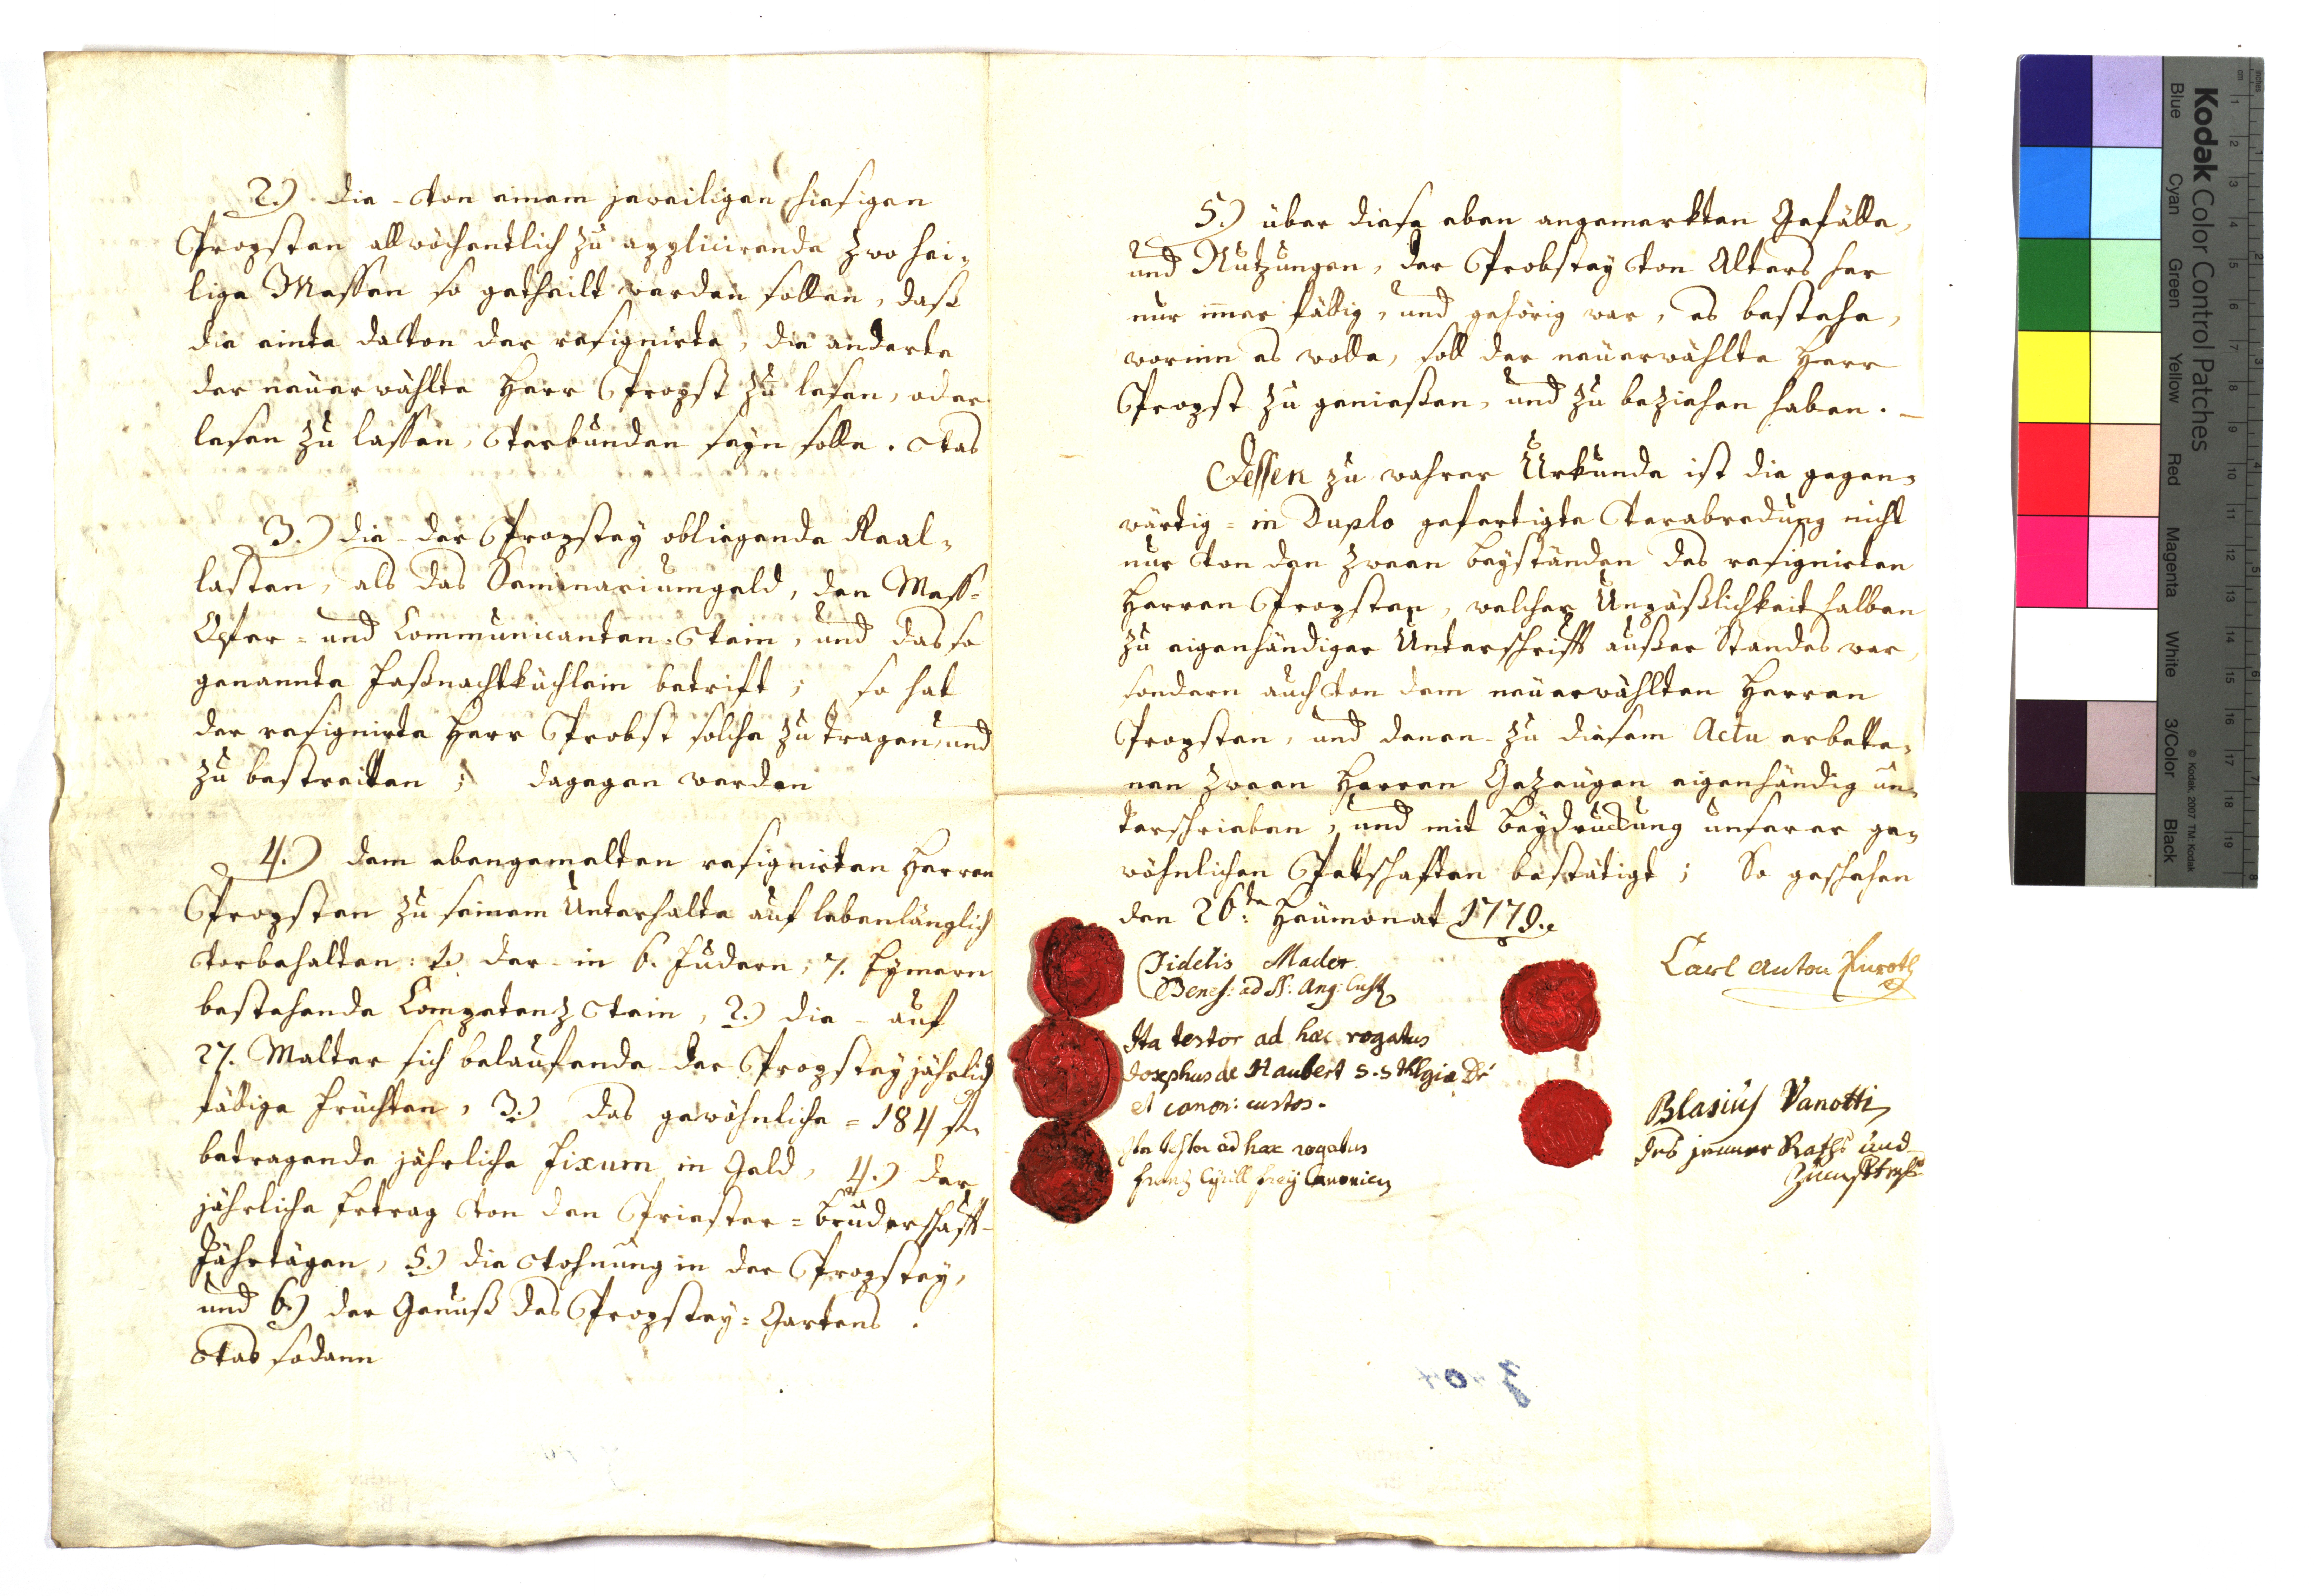 2.) die - von einem jeweiligen hiesigen
Propsten allwöchentlich zu applicirende zwo hei-
lige Messen so getheilt werden sollen, daß
die einte davon der resignirte, die anderte
der neüerwählte Herr Propst zu lesen, oder
lesen zu lassen, verbunden seyn solle. Was
3.) die - der Propstey obliegende Real-
lasten, als das Seminariumgeld, den Mess-
Opfer- und Communicanten-Wein, und das so
genannte Faßnachtküchlein betrift; so hat
der resignirte Herr Probst solche zu tragen, und
zu bestreitten; dagegen werden
4.) dem ebengemelten resignirten Herren
Propsten zu seinem Unterhalte auf lebenlänglich
vorbehalten: 1.) der - in 6. Fudern, 7. Eymern
bestehende Competenz Wein, 2.) die - auf
27. Malter sich belaufende - der Propstey jährlich
fällige Früchten, 3.) das gewöhnliche = 184 fl
betragende jährliche Fixum in Geld, 4.) der
jährliche Ertrag von den Priester = Bruderschaft-
Jährtägen, 5.) die Wohnung in der Propstey,
und 6.) der Genuß des Propstey = Gartens.
Was sodann
5.) über diese eben angemerkten Gefälle,
und Nutzungen, der Probstey von Alters her
nur im̄er fällig, und gehörig war, es bestehe,
worinn es wolle, soll der neüerwählte Herr
Propst zu genießen, und zu beziehen haben. -
Dessen zu wahrer Urkunde ist die gegen-
wärtig = in Duplo gefertigte Verabredung nicht
nur von den zween Beyständen des resignirten
Herren Propsten, welcher Unpäßlichkeit halben
zu eigenhändiger Unterschrift außer Standes war,
sondern auch von dem neüerwählten Herren
Propsten, und denen - zu diesem Actu erbette-
nen zween Herren Gezeügen eigenhändig un-
terschrieben, und mit Beydruckung unserer ge-
wöhnlichen Pettschaften bestätigt; So geschehen
den 26ten Heümonat 1779.
Fidelis Mader
Benef: ad SS: Ang: Cust
Carl Anton
Ita testor ad hæc rogatus
Josephus de Haubert S.S Thlgiæ Dr
et canon: custos.
Blasius Vanotti
des jnnern Raths und
Ita testor ad hæc rogatus
Franz Cyrill Frey Canonicus